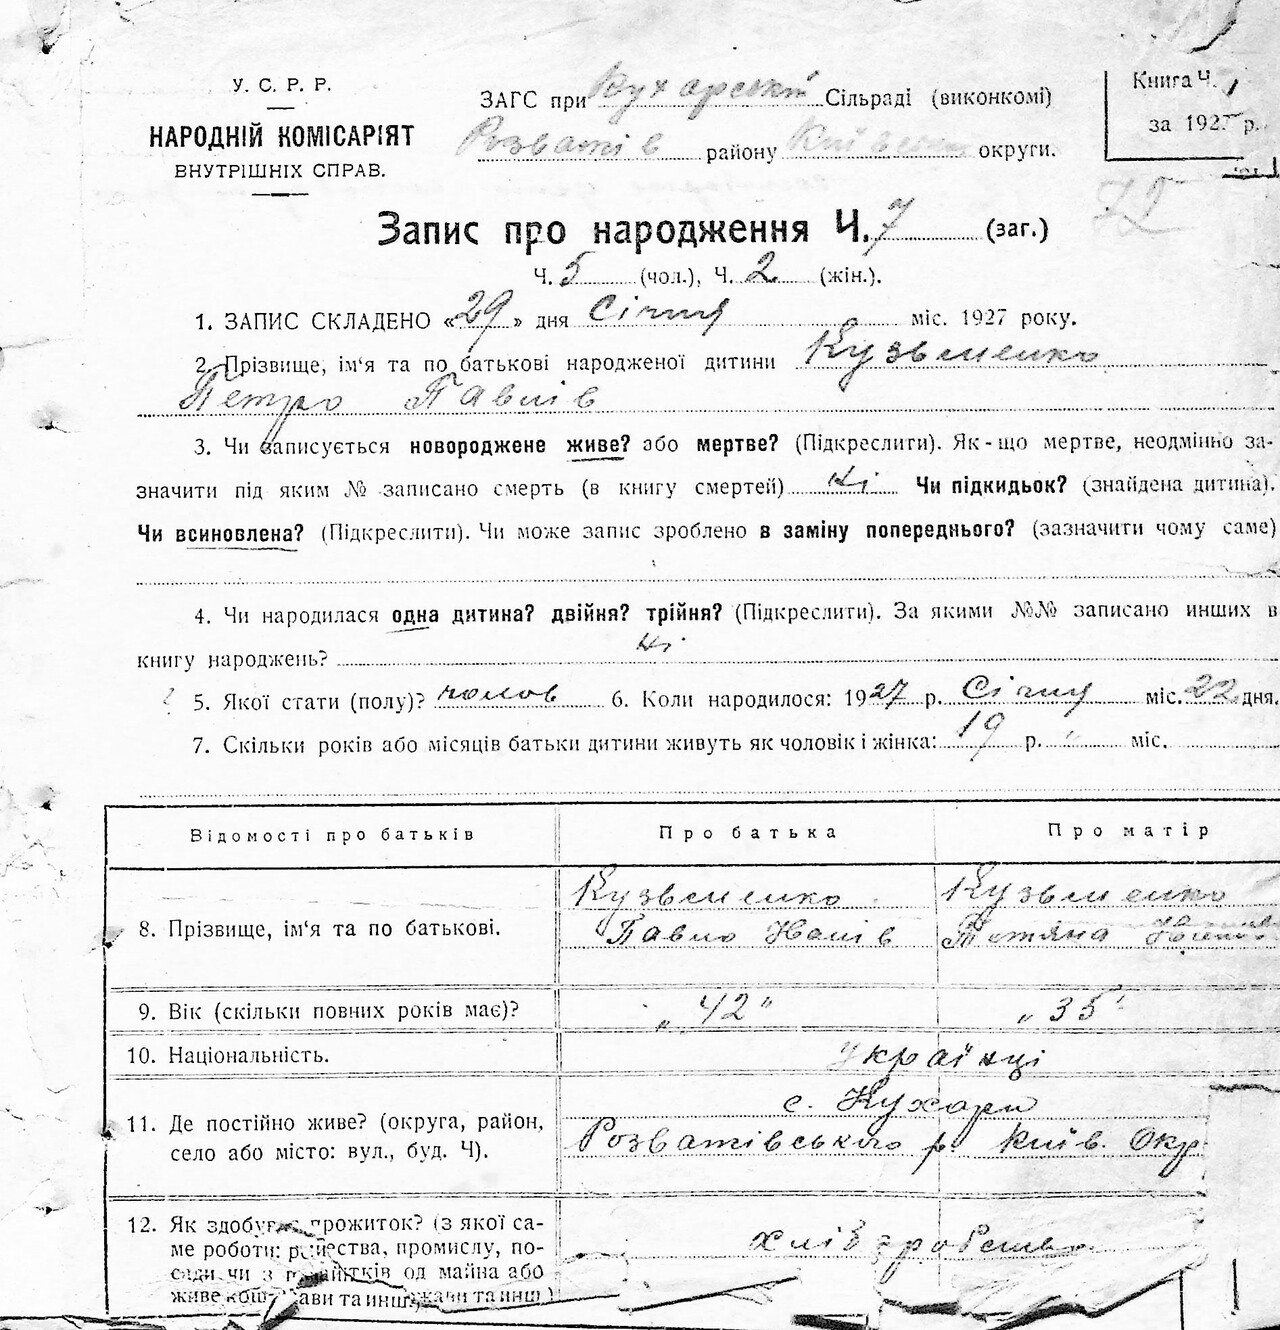 У. С. Р. Р.
НАРОДНІЙ КОМІСАРІЯТ
ВНУТРІШНІХ СПРАВ.
ЗАГС при Кухарській Сільраді (виконкомі)
Розватів району Київської округи.
Книга Ч. 1
за 1927 р.
72
Запис про народження Ч. 7 (заг.)
Ч. 5 (чол.), Ч. 2 (жін.).
1. ЗАПИС СКЛАДЕНО «29» дня Січня міс. 1927 року.
2. Прізвище, ім'я та по батькові народженої дитини Кузьменко
Петро Павлів
3. Чи записується новороджене живе? або мертве? (Підкреслити). Як-що мертве, неодмінно за-
значити під яким № записано смерть (в книгу смертей) ні Чи підкидьок? (знайдена дитина).
Чи всиновлена? (Підкреслити). Чи може запис зроблено в заміну попереднього? (зазначити чому саме)
4. Чи народилася одна дитина? двійня? трійня? (Підкреслити). За якими №№ записано инших в
книгу народжень? ні
5. Якої стати (полу)? чолов 6. Коли народилося: 1927 р. Січня міс. 22 дня.
7. Скільки років або місяців батьки дитини живуть як чоловік і жінка: 19 р. " міс.
Відомості про батьків Про батька Про матір
8. Прізвище, ім'я та по батькові. Кузьменко Павло Ивалів Кузьменко Тетяна
9. Вік (скільки повних років має)? „42" „35"
10. Національність. українці
11. Де постійно живе? (округа, район,
село або місто: вул., буд. Ч). с. Кухари
Розватівського р. Київ. Окр.
12. Як здобуває прожиток? (з якої са-
ме роботи: ремества, промислу, по-
сади чи з прибутків од майна або
живе коштами та инш.) хліборобство